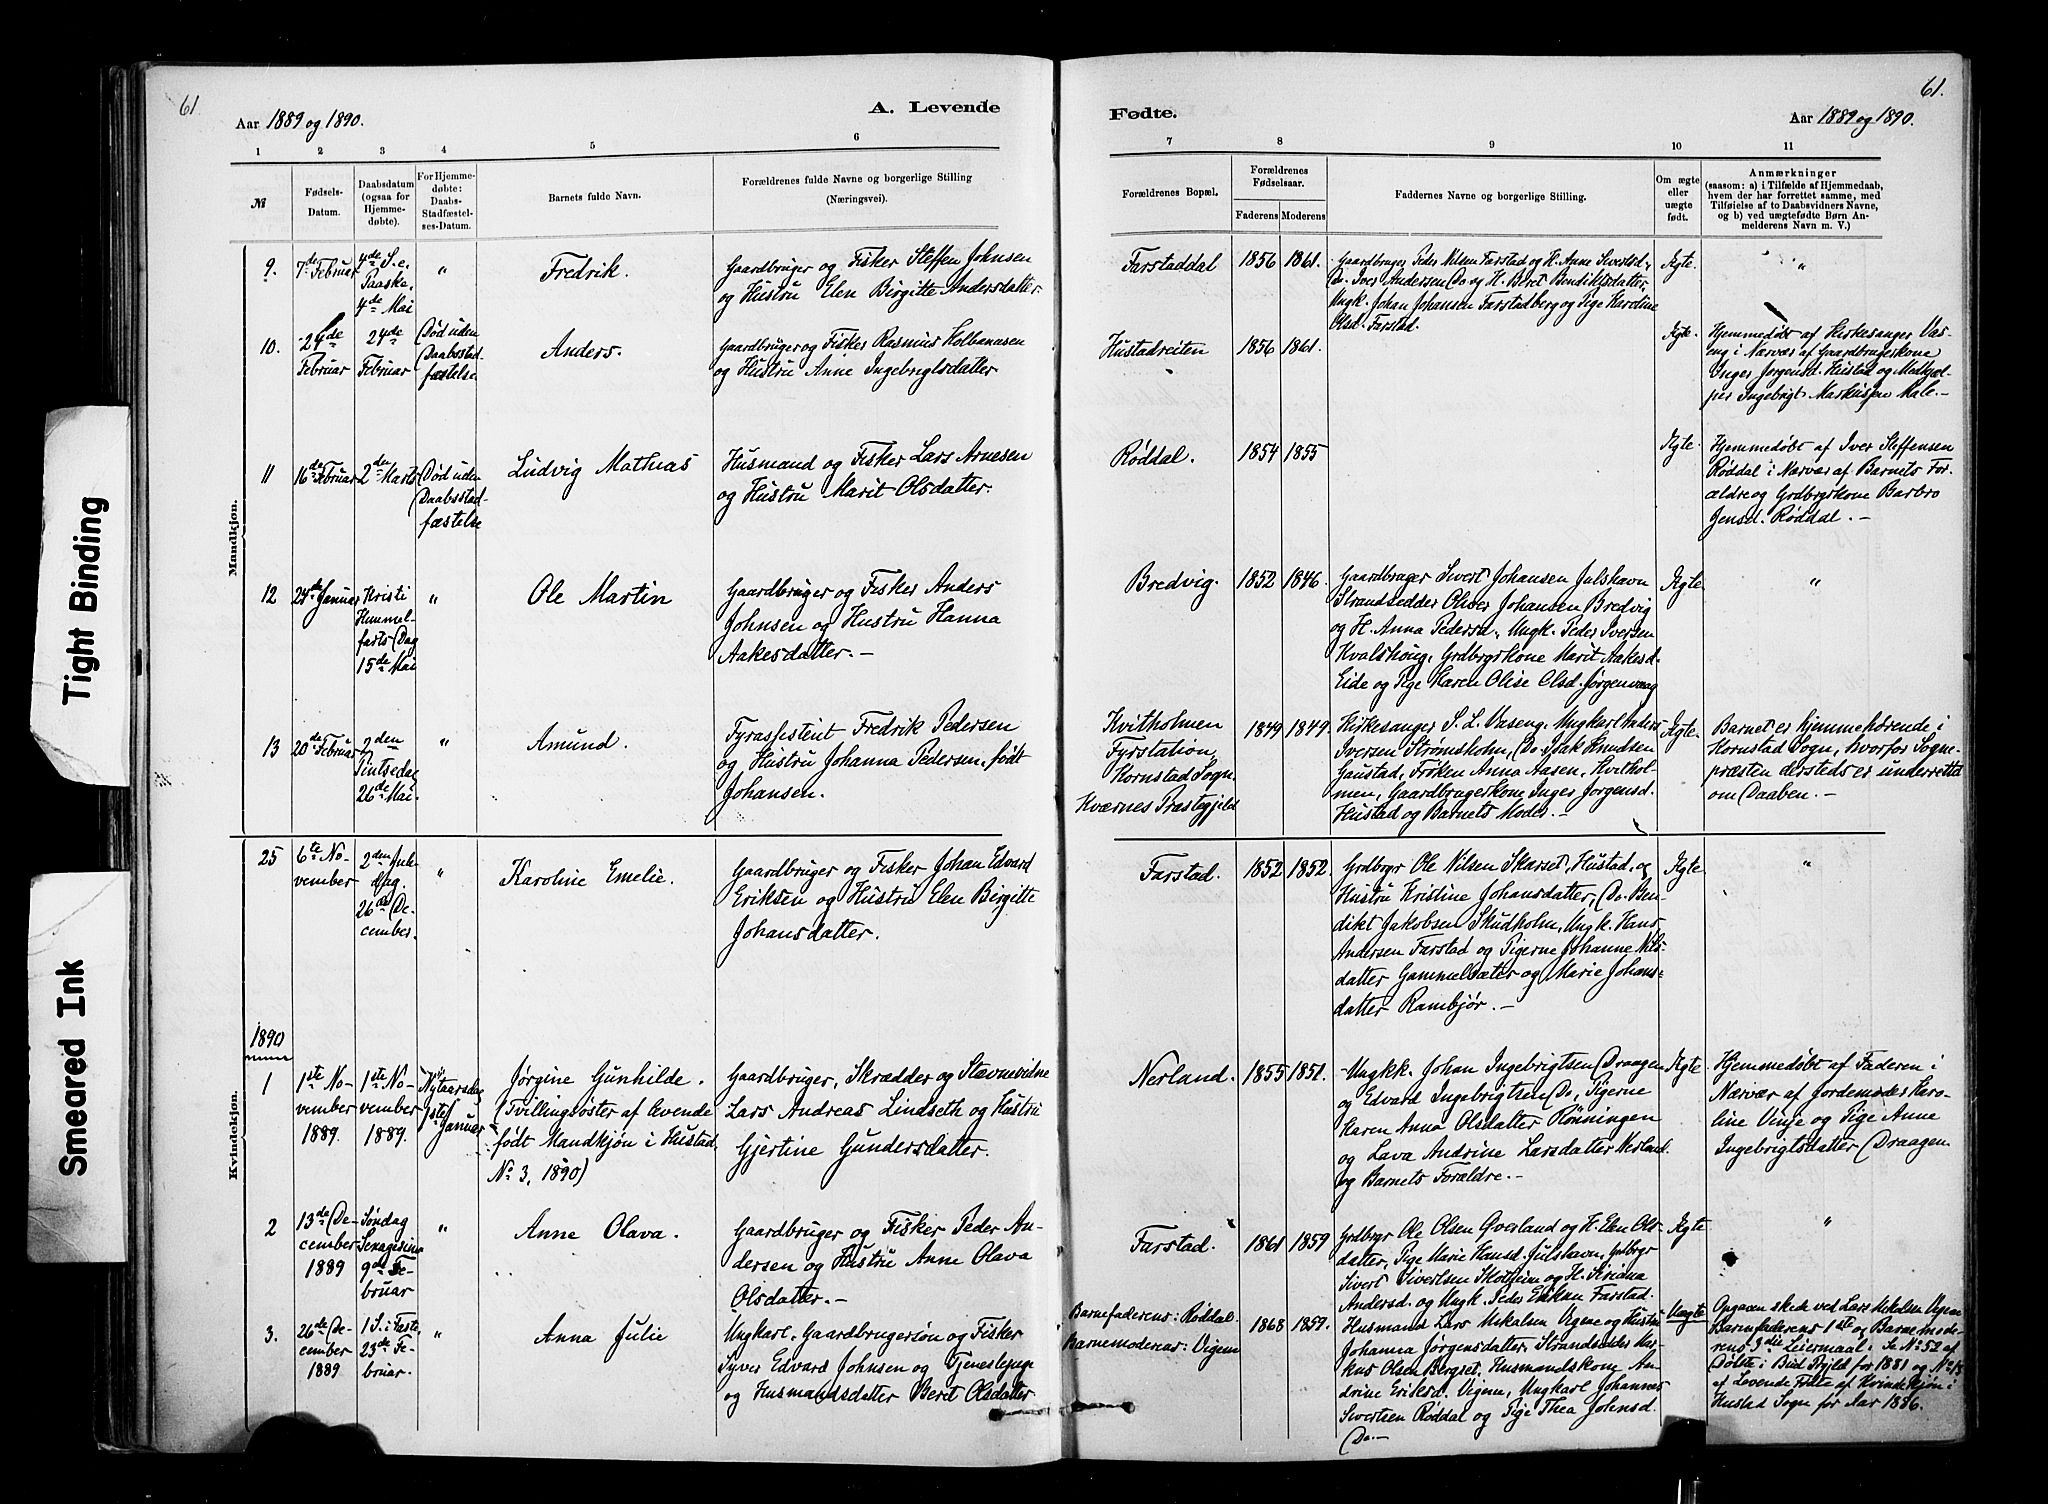 61.
61.
A. Levende
Fødte.
Aar 1889 og 1890.
Aar 1889 og 1890.
1 2 3 4 5 6
7 8 9 10 11
№
Fødsels-
Datum.
Daabsdatum
(ogsaa for
Hjemme-
døbte).
For Hjemme-
døbte:
Daabs-
Stadfæstel-
ses-Datum.
Barnets fulde Navn.
Forældrenes fulde Navne og borgerlige Stilling
(Næringsvei).
Forældrenes Bopæl.
Forældrenes
Fødselsaar.
Faderens
Moderens
Faddernes Navne og borgerlige Stilling.
Om ægte
eller
uægte
født.
Anmærkninger
(saasom: a) i Tilfælde af Hjemmedaab,
hvem der har forrettet samme, med
Tilføielse af to Daabsvidners Navne,
og b) ved uægtefødte Børn An-
melderens Navn m. V.)
Mandkjøn.
9.
7de Februar
4de S. e.
Paaske,
4de Mai
"
Fredrik.
Gaardbruger og Fisker Steffen Johnsen
og Hustru Elen Birgitte Andersdatter.
Farstaddal
1856
1861.
Gaardbruger Peder Nilsen Farstad og H. Anne Sivertsd.,
Do. Iver Andersen Do og H. Beret Bendiktsdatter,
Ungk. Johan Johansen Farstadberg og Pige Karoline
Olsd. Farstad.
Ægte.
"
10.
24de
Februar
24de
Februar
Død uden
Daabsstad-
fæstelse
Anders.
Gaardbruger og Fisker Rasmus Kolbanasen
og Hustru Anne Ingebrigtsdatter
Hustadreiten
1856
1861.
Ægte.
Hjemmedøbt af Kirkesanger Vas-
eng i Nærvær af Gaardbrugerkone
Inger Jørgensd. Hustad og Medhjæl-
per Ingebrigt Markussen Male.-
11
16de Februar
2den Marts
Død uden
Daabsstad-
fæstelse
Ludvig Mathias
Husmand og Fisker Lars Arnesen
og Hustru Marit Olsdatter.
Røddal.
1854
1855
Ægte.
Hjemmedøbt af Iver Steffensen
Røddal i Nærvær af Barnets For-
ældre og Grdbrgrkone Barbro
Jensd. Røddal.-
12
24de Januar
Kristi
Himmel-
farts Dag
15de Mai
"
Ole Martin
Gaardbruger og Fisker Anders
Johnsen og Hustru Hanna
Aakesdatter.-
Bredvig.
1852
1846.
Gaardbruger Sivert Johansen Julshavn
Strandsedder Oliver Johansen Bredvig
og H. Anna Pedersd., Ungk. Peder Iversen
Kvalshoug, Grdbrgrkone Marit Aakesd.
Eide og Pige Karen Olise Olsd. Jørgenvaag
Ægte.
"
13
20de Februar
2den
Pintsedag
26de Mai.
"
Amund.
Fyrassistent Fredrik Pedersen
og Hustru Johanna Pedersen, født
Johansen.
Kvitholmen
Fyrstation,
Kornstad Sogn,
Kværnes Præstegjeld
1849
1849.
Kirkesanger S. L. Vaseng. Ungkarl Anders
Iversen Strømsholm, Do. Isak Knudsen
Gaustad, Frøken Anna Aasen, Kvithol-
men, Gaardbrugerkone Inger Jørgensd.
Hustad og Barnets Moder.-
Ægte.
Barnet er hjemmehørende i
Kornstad Sogn, hvorfor Sogne-
præsten dersteds er underrettet
om Daaben.-
25
6te No-
vember
2den Jule-
dag.
26de De-
cember.
"
Karoline Emelie.
Gaardbruger og Fisker Johan Edvard
Eriksen og Hustru Elen Birgitte
Johansdatter.
Farstad.
1852
1852.
Grdbrgr Ole Nilsen Skarset, Hustad, og
Hustru Kristine Johansdatter, Do. Ben-
dikt Jakobsen Skudholm, Ungk. Hans
Andersen Farstad og Pigerne Johanne Nils-
datter Gammelsæter og Marie Johans-
datter Rambjør.-
Ægte.
"
Kvindekjøn.
1890
1
1ste No-
vember
1889.
1ste No-
vember
1889.
Nytaarsdag
1ste Januar
Jørgine Gunhilde.
(Tvillingsøster af levende
født Mandkjøn i Hustad
No 3, 1890)
Gaardbruger, Skrædder og Stævnevidne
Lars Andreas Lindseth og Hustru
Gjertine Gundersdatter.
Nerland.
1855
1851.
Ungkk. Johan Ingebrigtsen Draagen
og Edvard Ingebrigtsen Do, Pigerne
Karen Anna Olsdatter Rønningen
og Lava Andrine Larsdatter Nerland
og Barnets Forældre.-
Ægte
Hjemmedøbt af Faderen i
Nærvær af Jordemoder Karo-
line Vinje og Pige Anne
Ingebrigtsdatter Draagen
2
13de De-
cember
1889
Søndag
Sexagesima
9de Fe-
bruar
"
Anne Olava.
Gaardbruger og Fisker Peder An-
dersen og Hustru Anne Olava
Olsdatter.-
Farstad.
1861
1859
Grdbrgr Ole Olsen Øverland og H. Elen Ols-
datter, Pige Marie Hansd. Julshavn, Grdbrgr
Sivert Sivertsen Skotheim og H. Siriana
Andersd. og Ungk. Peder Farstad.
Ægte
"
3.
26de De-
cember
1889
1 S. i Faste
23de Fe-
bruar.
"
Anna Julie
Ungkarl, Gaardbrugersøn og Fisker
Syver Edvard Johnsen og Tjenestepige
og Husmandsdatter Beret Olsdatter
Barnefaderens: Røddal.
Barnemoderens: Vigem
1868
1859.
Husmand Lars Mikalsen Vigem og Hustru
Johanna Jørgensdatter, Strandsedder Mar-
kus Olsen Bergset, Husmandskone An-
drine Eriksd. Vigem, Ungkarl Johannes
Sivertsen Røddal og Pige Thea Johnsd.
Do.-
Uægte
Opgaven skede ved Lars Mikalsen Vigem
Barnefaderens 1ste og Barnemode-
rens 3die Leiermaal. Se No 52 af
Døbte i Bud Prgjld for 1881 og No 13
af Levende Fødte af Kvindekjøn i
Hustad Sogn for Aar 1886.
Tight Binding
Smeared Ink